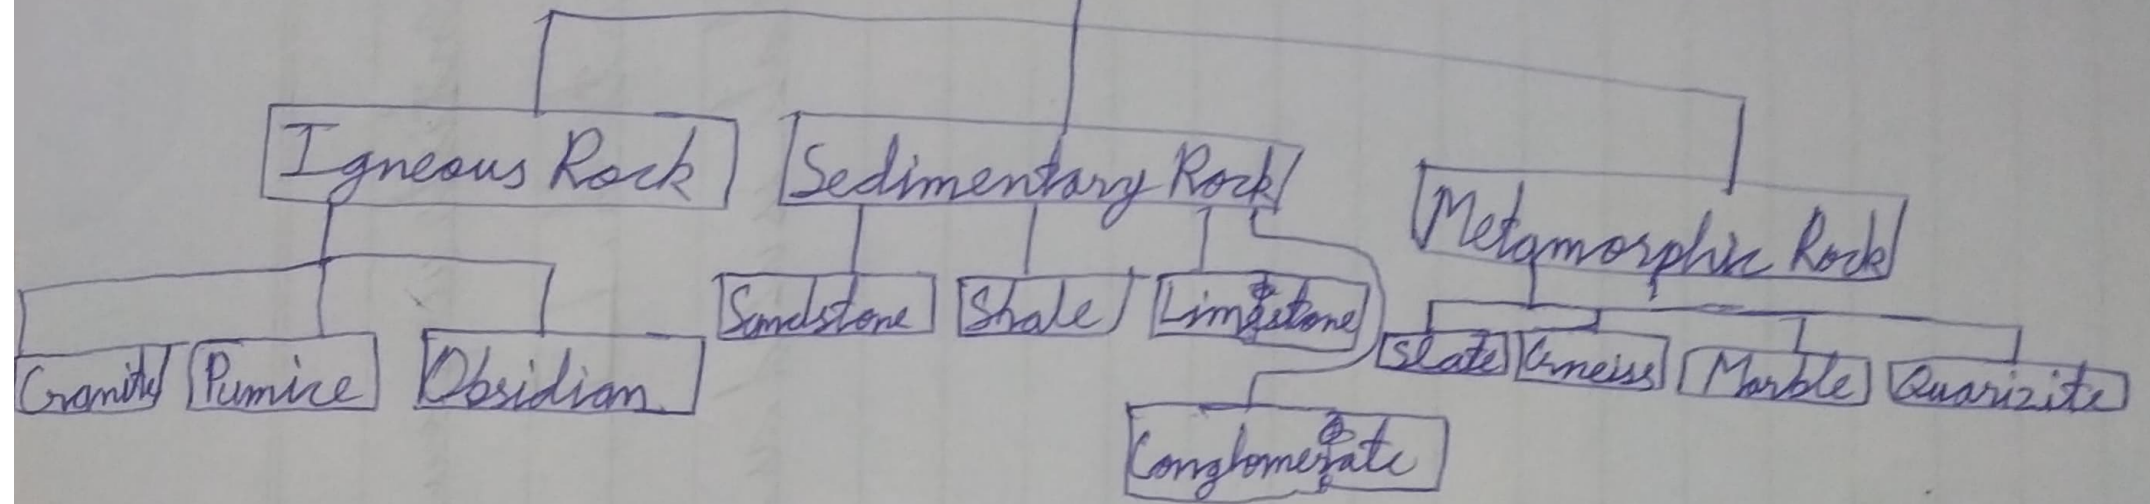 Igneous Rock
Sedimentary Rock
Metamorphic Rock
Granite
Pumice
Obsidian
Sandstone
Shale
Limestone
Slate
Gneiss
Marble
Quarizite
Conglomerate